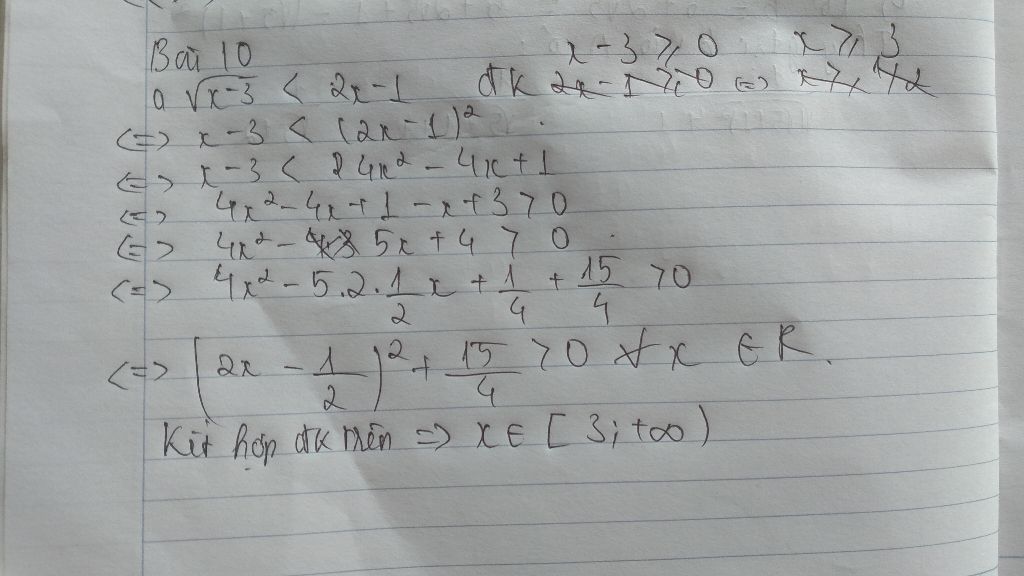 Bài 10 x - 3 ≥ 0 x ≥ 3
a √x-3 < 2x-1 đk 2x - 1 ≥ 0 <=> x ≥ 1/2
<=> x - 3 < (2x - 1)²
<=> x - 3 < 4x² - 4x + 1
<=> 4x² - 4x + 1 - x + 3 > 0
<=> 4x² - 5x + 4 > 0
<=> 4x² - 5.2.1/2 x + 1/4 + 15/4 > 0
<=> (2x - 1/2)² + 15/4 > 0 ∀x ∈ R.
Kết hợp đk trên => x ∈ [3; +∞)